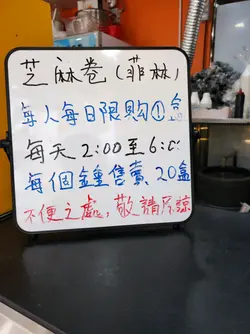 芝麻卷(菲林)
每人每日限購①盒
每天 2:00至6:00
每個鐘售賣 20盒
不便之處,敬請原諒